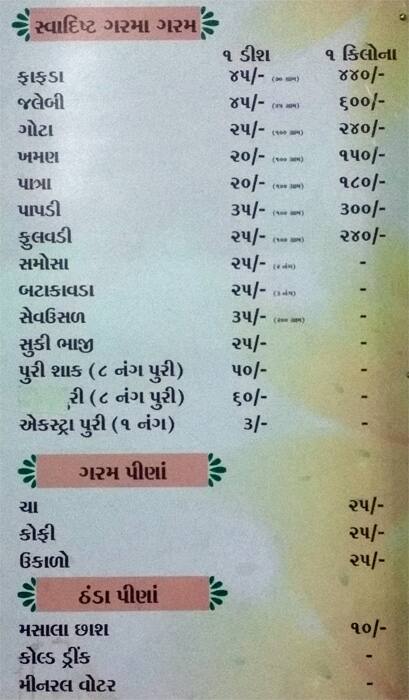 સ્વાદિષ્ટ ગરમા ગરમ
૧ ડીશ ૧ કિલોના
ફાફડા ૪૫/- ૪૪૦/-
જલેબી ૪૫/- ૬૦૦/-
ગોટા ૨૫/- (૧૦૦ ગ્રામ) ૨૪૦/-
ખમણ ૨૦/- (૧૦૦ ગ્રામ) ૧૫૦/-
પાત્રા ૨૦/- (૧૦૦ ગ્રામ) ૧૮૦/-
પાપડી ૩૫/- (૧૦૦ ગ્રામ) ૩૦૦/-
ફુલવડી ૨૫/- (૧૦૦ ગ્રામ) ૨૪૦/-
સમોસા ૨૫/- -
બટાકાવડા ૨૫/- -
સેવઉસળ ૩૫/- (૨૦૦ ગ્રામ) -
સુકી ભાજી ૨૫/- -
પુરી શાક (૮ નંગ પુરી) ૫૦/- -
રી (૮ નંગ પુરી) ૬૦/- -
એકસ્ટ્રા પુરી (૧ નંગ) ૩/- -
ગરમ પીણાં
ચા ૨૫/-
કોફી ૨૫/-
ઉકાળો ૨૫/-
ઠંડા પીણાં
મસાલા છાશ ૧૦/-
કોલ્ડ ડ્રીંક -
મીનરલ વોટર -